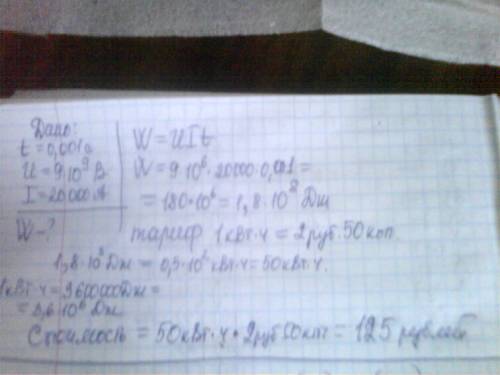 Дано:
t = 0,001с
U = 9·10⁹ В
I = 20000 А
W - ?
W = UIt
W = 9·10⁶·20000·0,001 =
= 180·10⁶ = 1,8·10⁸ Дж
тариф 1 кВт·ч = 2 руб. 50 коп.
1,8·10⁸ Дж = 0,5·10² кВт·ч = 50 кВт·ч.
1 кВт·ч = 3600000 Дж =
= 3,6·10⁶ Дж
Стоимость = 50 кВт·ч · 2 руб 50 коп = 125 рублей